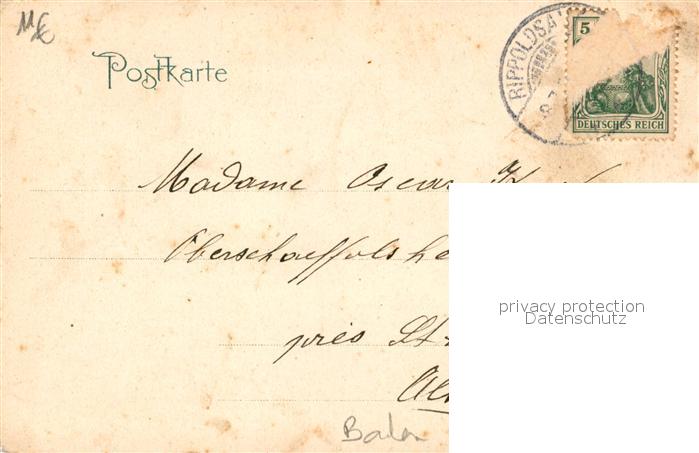 M€
Postkarte
RIPPOLDSA
5
DEUTSCHES REICH
Madame Oscar
Oberschaeffolshe
près St
Baden
privacy protection
Datenschutz